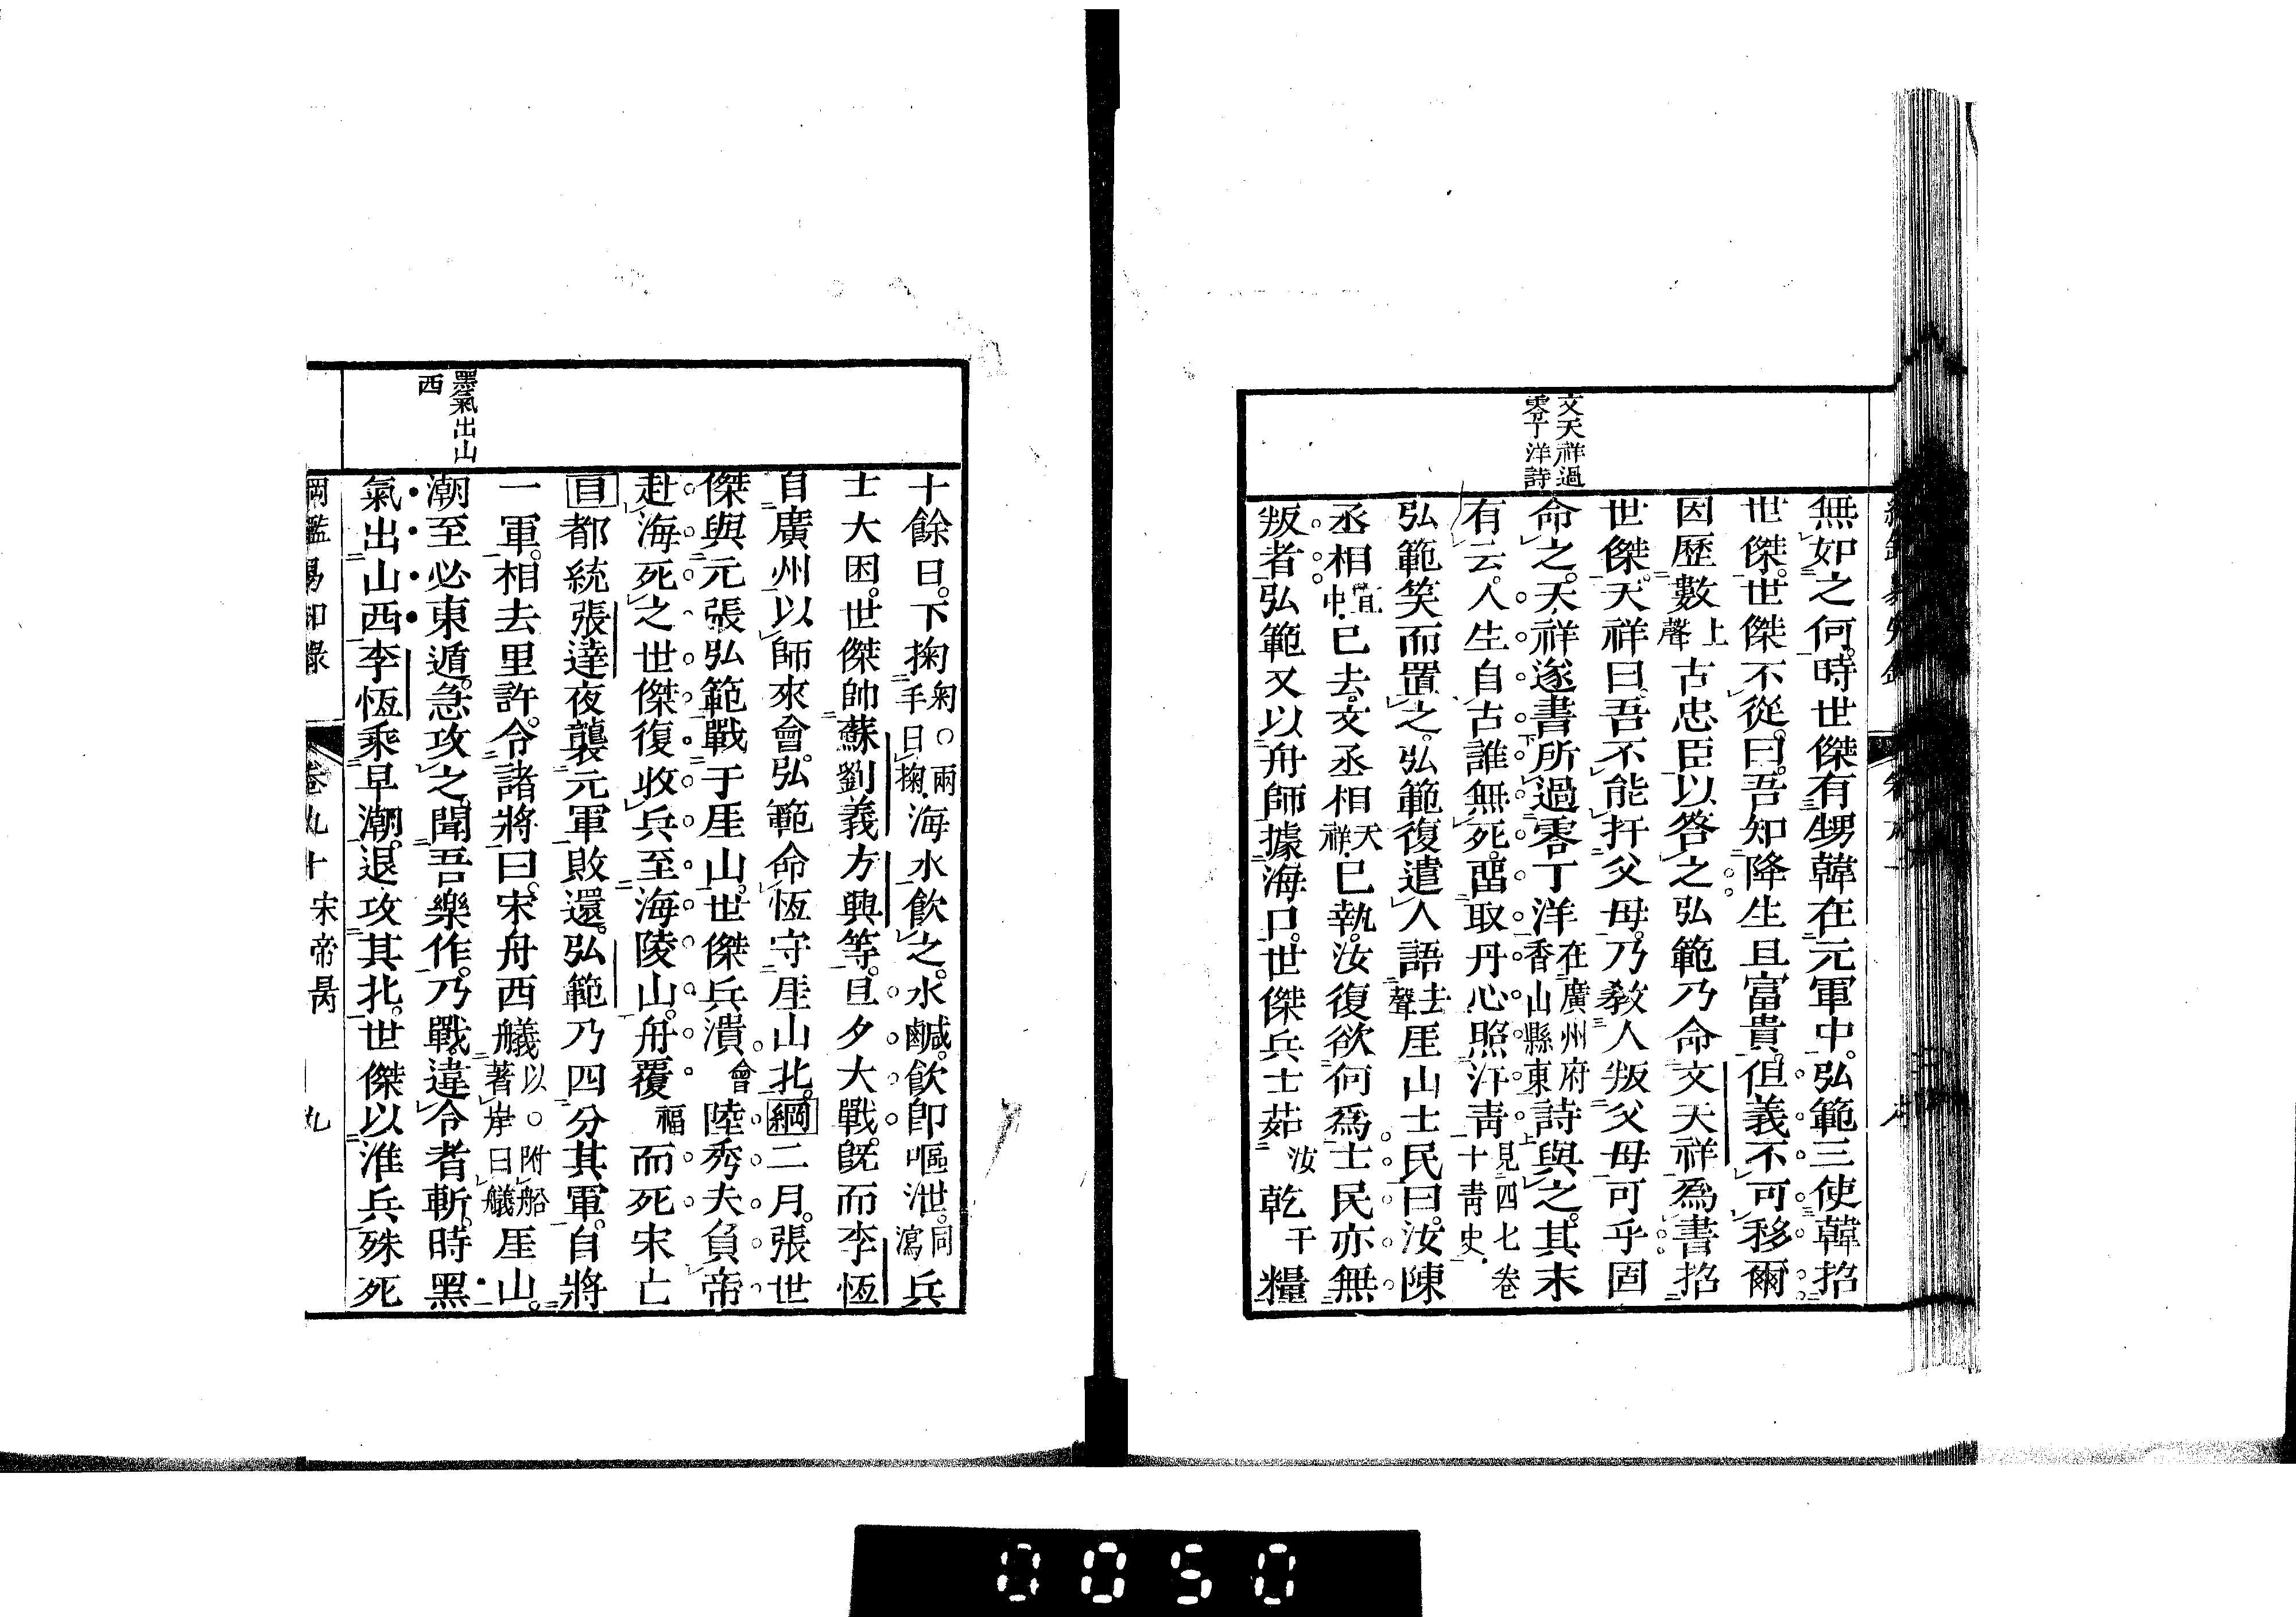 文天祥過
零丁洋詩
無如之何。時世傑有甥韓在元軍中。弘範三使韓招
世傑。世傑不從。曰。吾知降生且富貴。但義不可移爾
因歷數上聲古忠臣以答之弘範乃命文天祥爲書招
世傑。天祥曰。吾不能扞父母。乃敎人叛父母可乎固
命之。天祥遂書所過零丁洋在廣州府香山縣東詩與之。其末
有云。人生自古誰無死。畱取丹心照汗靑見四七卷十靑史
弘範笑而置之。弘範復遣人語去聲厓山士民曰。汝陳
丞相宜中已去。文丞相天祥已執。汝復欲何爲士民亦無
叛者。弘範又以舟師據海口。世傑兵士茹汝乾干糧
墨氣出山
西
十餘日。下掬匊○兩手曰掬海水飮之。水鹹。飮卽嘔泄。同瀉兵
士大困。世傑帥蘇劉義方興等。旦夕大戰。旣而李恆
自廣州以師來會。弘範命恆守厓山北。綱二月。張世
傑與元張弘範戰于厓山。世傑兵潰會陸秀夫負帝
赴海死之世傑復收兵至海陵山。舟覆福而死宋亡
目都統張達夜襲元軍敗還。弘範乃四分其軍。自將
一軍。相去里許。令諸將曰。宋舟西艤以○附船著岸曰艤厓山。
潮至必東遁。急攻之。聞吾樂作。乃戰。違令者斬。時黑
氣出山西李恆乘早潮。退攻其北。世傑以淮兵殊死
綱鑑易知錄 卷九十 宋帝昺 九
0050